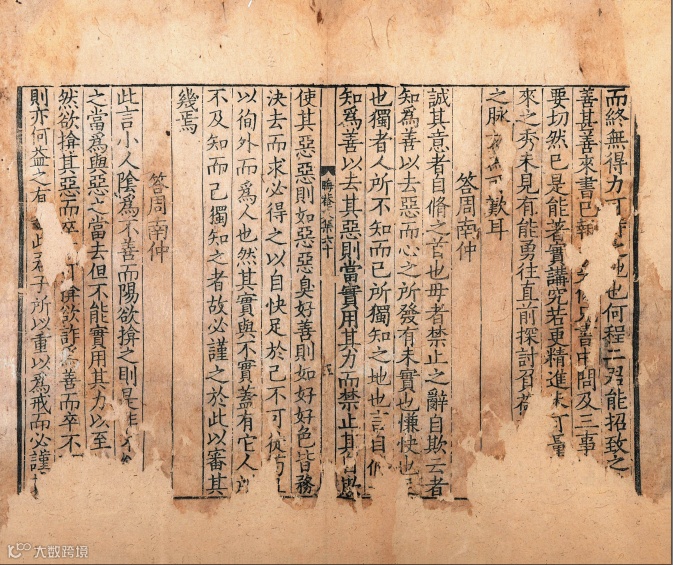 而終無得力可之地也何程二君能招致之
善甚善來書已書中問及三事
要切然已是能者實講究若更精進未可量
來之秀未見有能勇往直前探討負荷
之脉歎耳
答周南仲
誠其意者自脩之首也毋者禁止之辭自欺云者
知為善以去惡而心之所發有未實也慊快也
也獨者人所不知而已所獨知之地也言自脩
知為善以去其惡則當實用其力而禁止其自欺
晦菴 第六十
使其惡惡則如惡惡臭好善則如好好色皆務
決去而求必得之以自快足於己不可徒苟
以徇外而為人也然其實與不實蓋有它人所
不及知而己獨知之者故必謹之於此以審其
幾焉
答周南仲
此言小人陰為不善而陽欲揜之則是非不
之當為與惡之當去但不能實用其力以至
然欲揜其惡而卒可揜欲詐為善而卒不
則亦何益之有此君子所以重以為戒而必謹
大数跨境